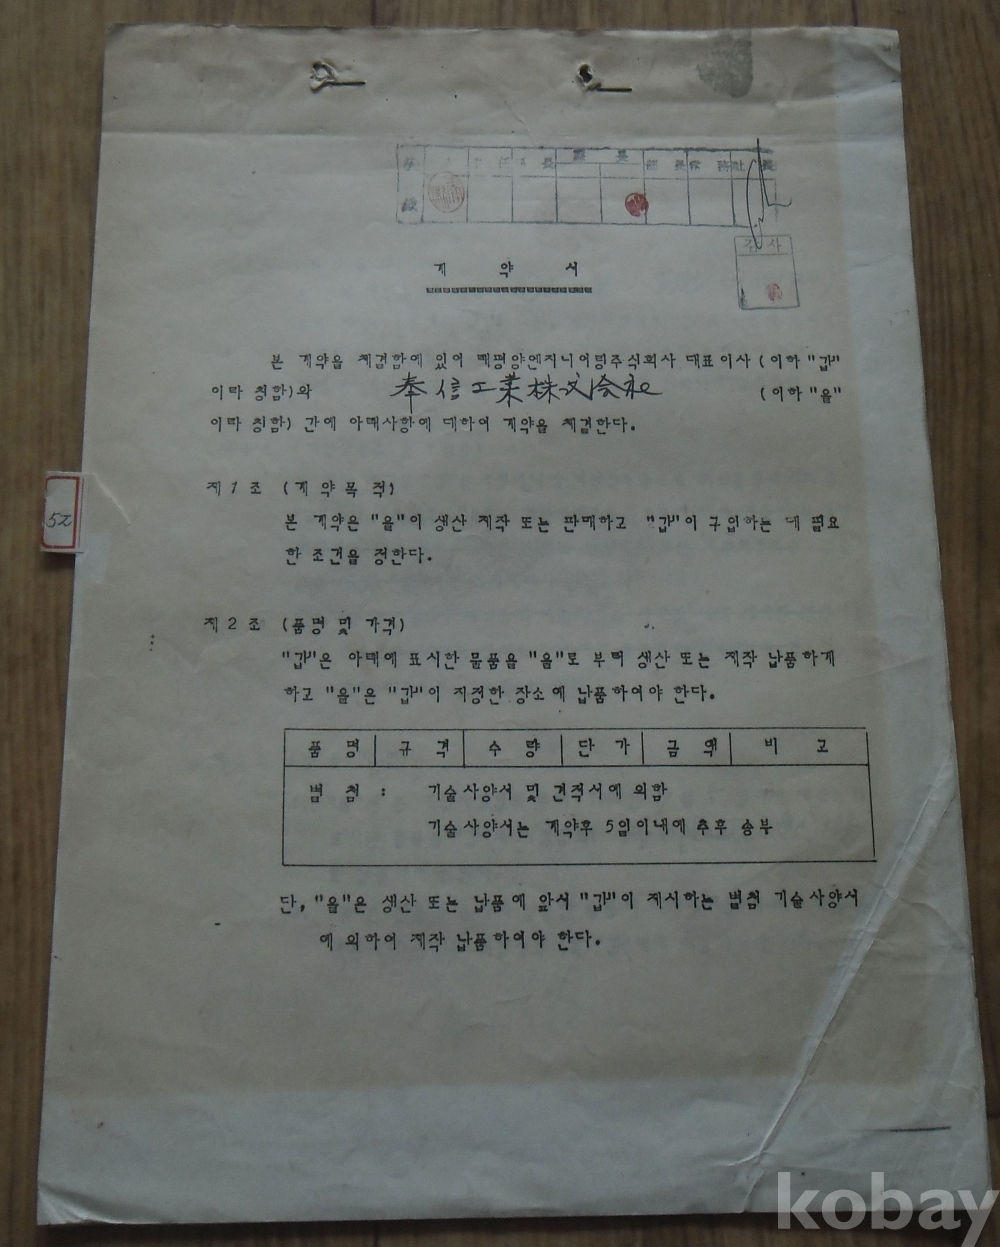 長
長
社 長
검 사
계 약 서
본 계약을 체결함에 있어 태평양엔지니어링주식회사 대표이사 (이하 "갑"
이라 칭함)와 奉信工業株式会社 (이하 "을"
이라 칭함) 간에 아래사항에 대하여 계약을 체결한다.
52
제 1 조 (계 약 목 적)
본 계약은 "을"이 생산 제작 또는 판매하고 "갑"이 구입하는 데 필요
한 조건을 정한다.
제 2 조 (품명 및 가격)
"갑"은 아래에 표시한 물품을 "을"로 부터 생산 또는 제작 납품하게
하고 "을"은 "갑"이 지정한 장소에 납품하여야 한다.
품 명 규 격 수 량 단 가 금 액 비 고
별 첨 : 기술사양서 및 견적서에 의함
기술사양서는 계약후 5일이내에 추후 송부
단, "을"은 생산 또는 납품에 앞서 "갑"이 제시하는 별첨 기술사양서
에 의하여 제작 납품하여야 한다.
kobay